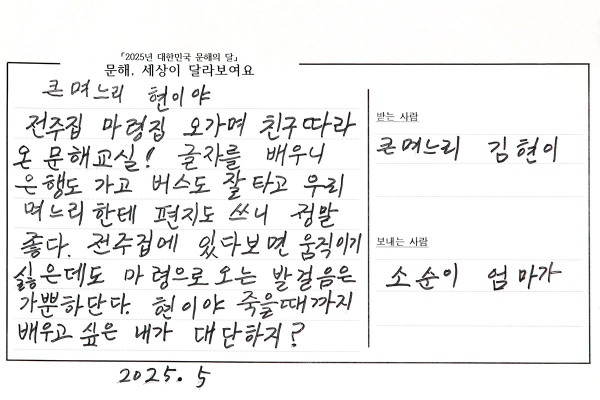 『2025년 대한민국 문해의 달』
문해, 세상이 달라보여요
큰며느리 현이야
전주집 마령집 오가며 친구따라
온 문해교실! 글자를 배우니
은행도 가고 버스도 잘 타고 우리
며느리한테 편지도 쓰니 정말
좋다. 전주집에 있다보면 움직이기
싫은데도 마령으로 오는 발걸음은
가뿐하단다. 현이야 죽을때까지
배우고 싶은 내가 대단하지?
받는 사람
큰며느리 김현이
보내는 사람
소순이 엄마가
2025. 5